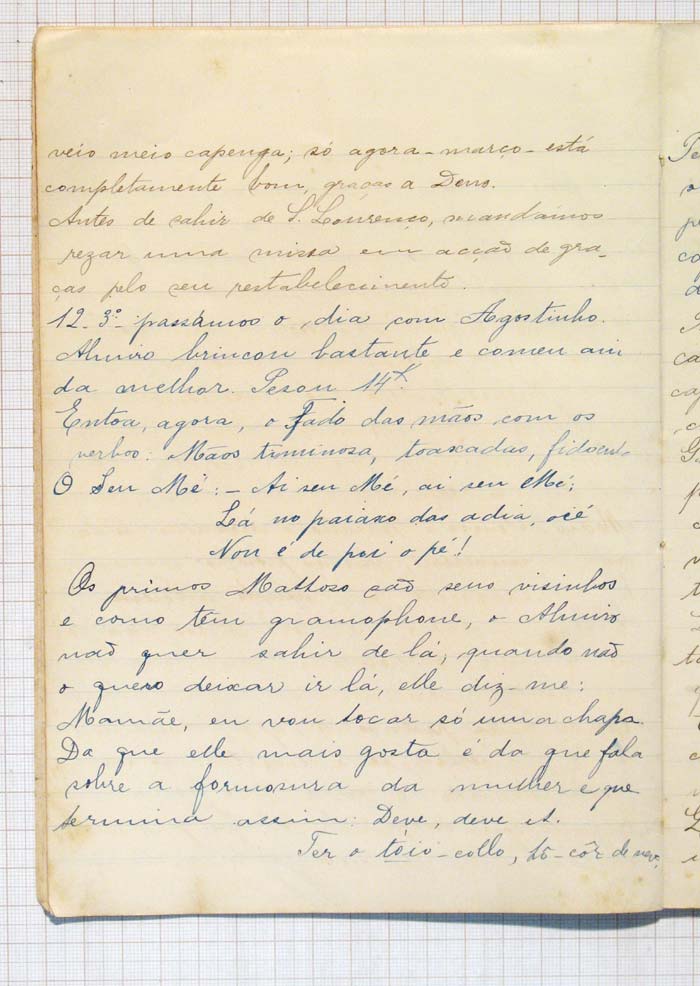 veio meio capenga; só agora - março - está
completamente bom, graças a Deus.
Antes de sahir de S. Lourenço, mandámos
rezar uma missa em acção de gra-
ças pelo seu restabelecimento.
12-3º- passámos o dia com Agostinho.
Almiro brincou bastante e comeu ain
da melhor. Pesou 14K.
Entoa, agora, o Fado das mãos com os
versos: Mãos timinosa, toaxadas,
O Seu Mé: - Ai seu Mé, ai seu Mé;
Lá no paiaxo das adia, océ
Non é de poi o pé!
Os primos Mattoso são seus visinhos
e como têm gramophone, o Almiro
não quer sahir de lá; quando não
o quero deixar ir lá, elle diz-me:
Mamãe, eu vou tocar só uma chapa.
Da que elle mais gosta é da que fala
sobre a formosura da mulher e que
termina assim: Deve, deve et.
Ter o tóio-collo, tô-côr de neve,